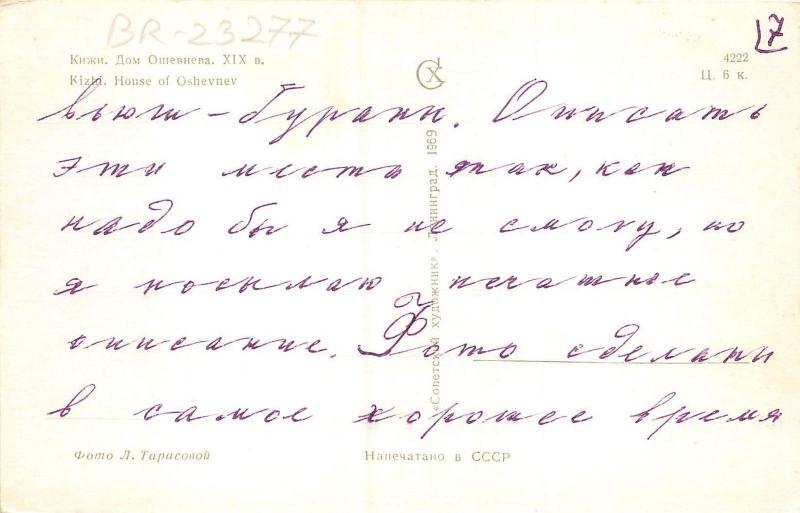 BR-23277
7
Кижи. Дом Ошевнева. XIX в.
Kizhi. House of Oshevnev
4222
Ц. 6 к.
вьюги-бураны. Описать
эти места так, как
надо бы я не смогу, но
я посылаю печатное
описание. Фото сделаны
в самое хорошее время
«Советский художник». Ленинград. 1969
Фото Л. Тарасовой
Напечатано в СССР